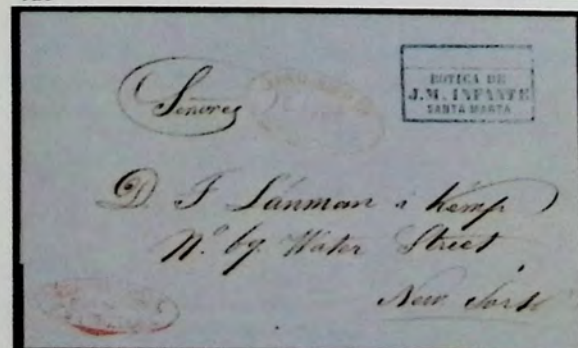 Señores
BOTICA DE
J. M. INFANTE
SANTA MARTA
D. T Lánman & Kemp
N.º 69 Water Street
New York